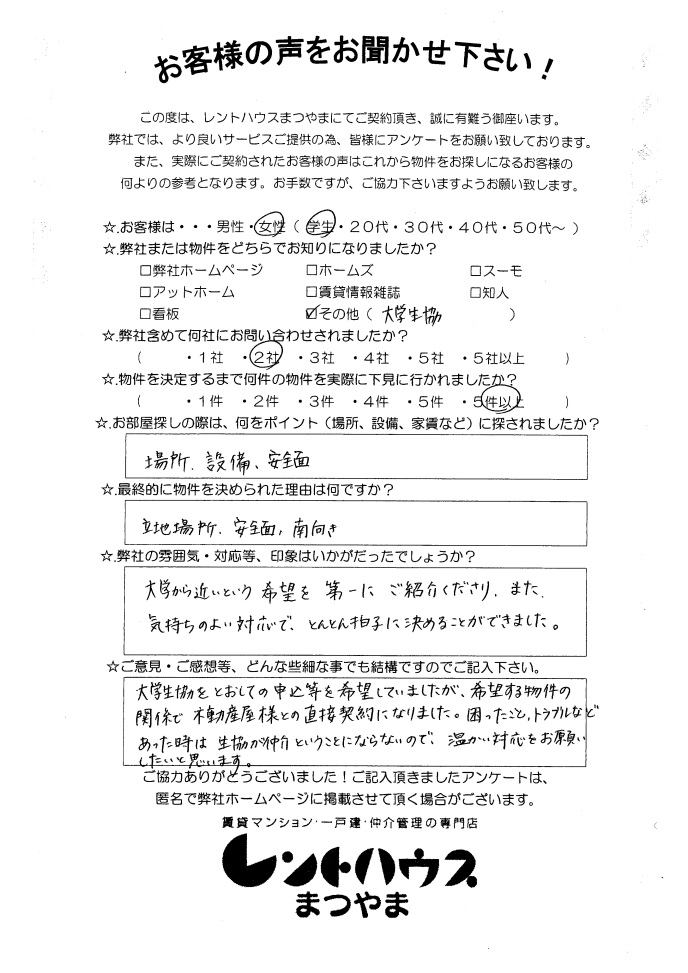 お客様の声をお聞かせ下さい！
この度は、レントハウスまつやまにてご契約頂き、誠に有難う御座います。
弊社では、より良いサービスご提供の為、皆様にアンケートをお願い致しております。
また、実際にご契約されたお客様の声はこれから物件をお探しになるお客様の
何よりの参考となります。お手数ですが、ご協力下さいますようお願い致します。
☆.お客様は・・・男性・女性（ 学生・２０代・３０代・４０代・５０代～ ）
☆.弊社または物件をどちらでお知りになりましたか？
□弊社ホームページ □ホームズ □スーモ
□アットホーム □賃貸情報雑誌 □知人
□看板 ☑その他（ 大学生協 ）
☆.弊社含めて何社にお問い合わせされましたか？
（ ・１社 ・２社 ・３社 ・４社 ・５社 ・５社以上 ）
☆.物件を決定するまで何件の物件を実際に下見に行かれましたか？
（ ・１件 ・２件 ・３件 ・４件 ・５件 ・５件以上 ）
☆.お部屋探しの際は、何をポイント（場所、設備、家賃など）に探されましたか？
場所、設備、安全面
☆.最終的に物件を決められた理由は何ですか？
立地場所、安全面、南向き
☆.弊社の雰囲気・対応等、印象はいかがだったでしょうか？
大学から近いという希望を第一にご紹介くださり、また、
気持ちのよい対応で、とんとん拍子に決めることができました。
☆ご意見・ご感想等、どんな些細な事でも結構ですのでご記入下さい。
大学生協をとおしての申込等を希望していましたが、希望する物件の
関係で不動産屋様との直接契約になりました。困ったこと,トラブルなど
あった時は生協が仲介ということにならないので、温かい対応をお願い
したいと思います。
ご協力ありがとうございました！ご記入頂きましたアンケートは、
匿名で弊社ホームページに掲載させて頂く場合がございます。
賃貸マンション・一戸建・仲介管理の専門店
レントハウス
まつやま